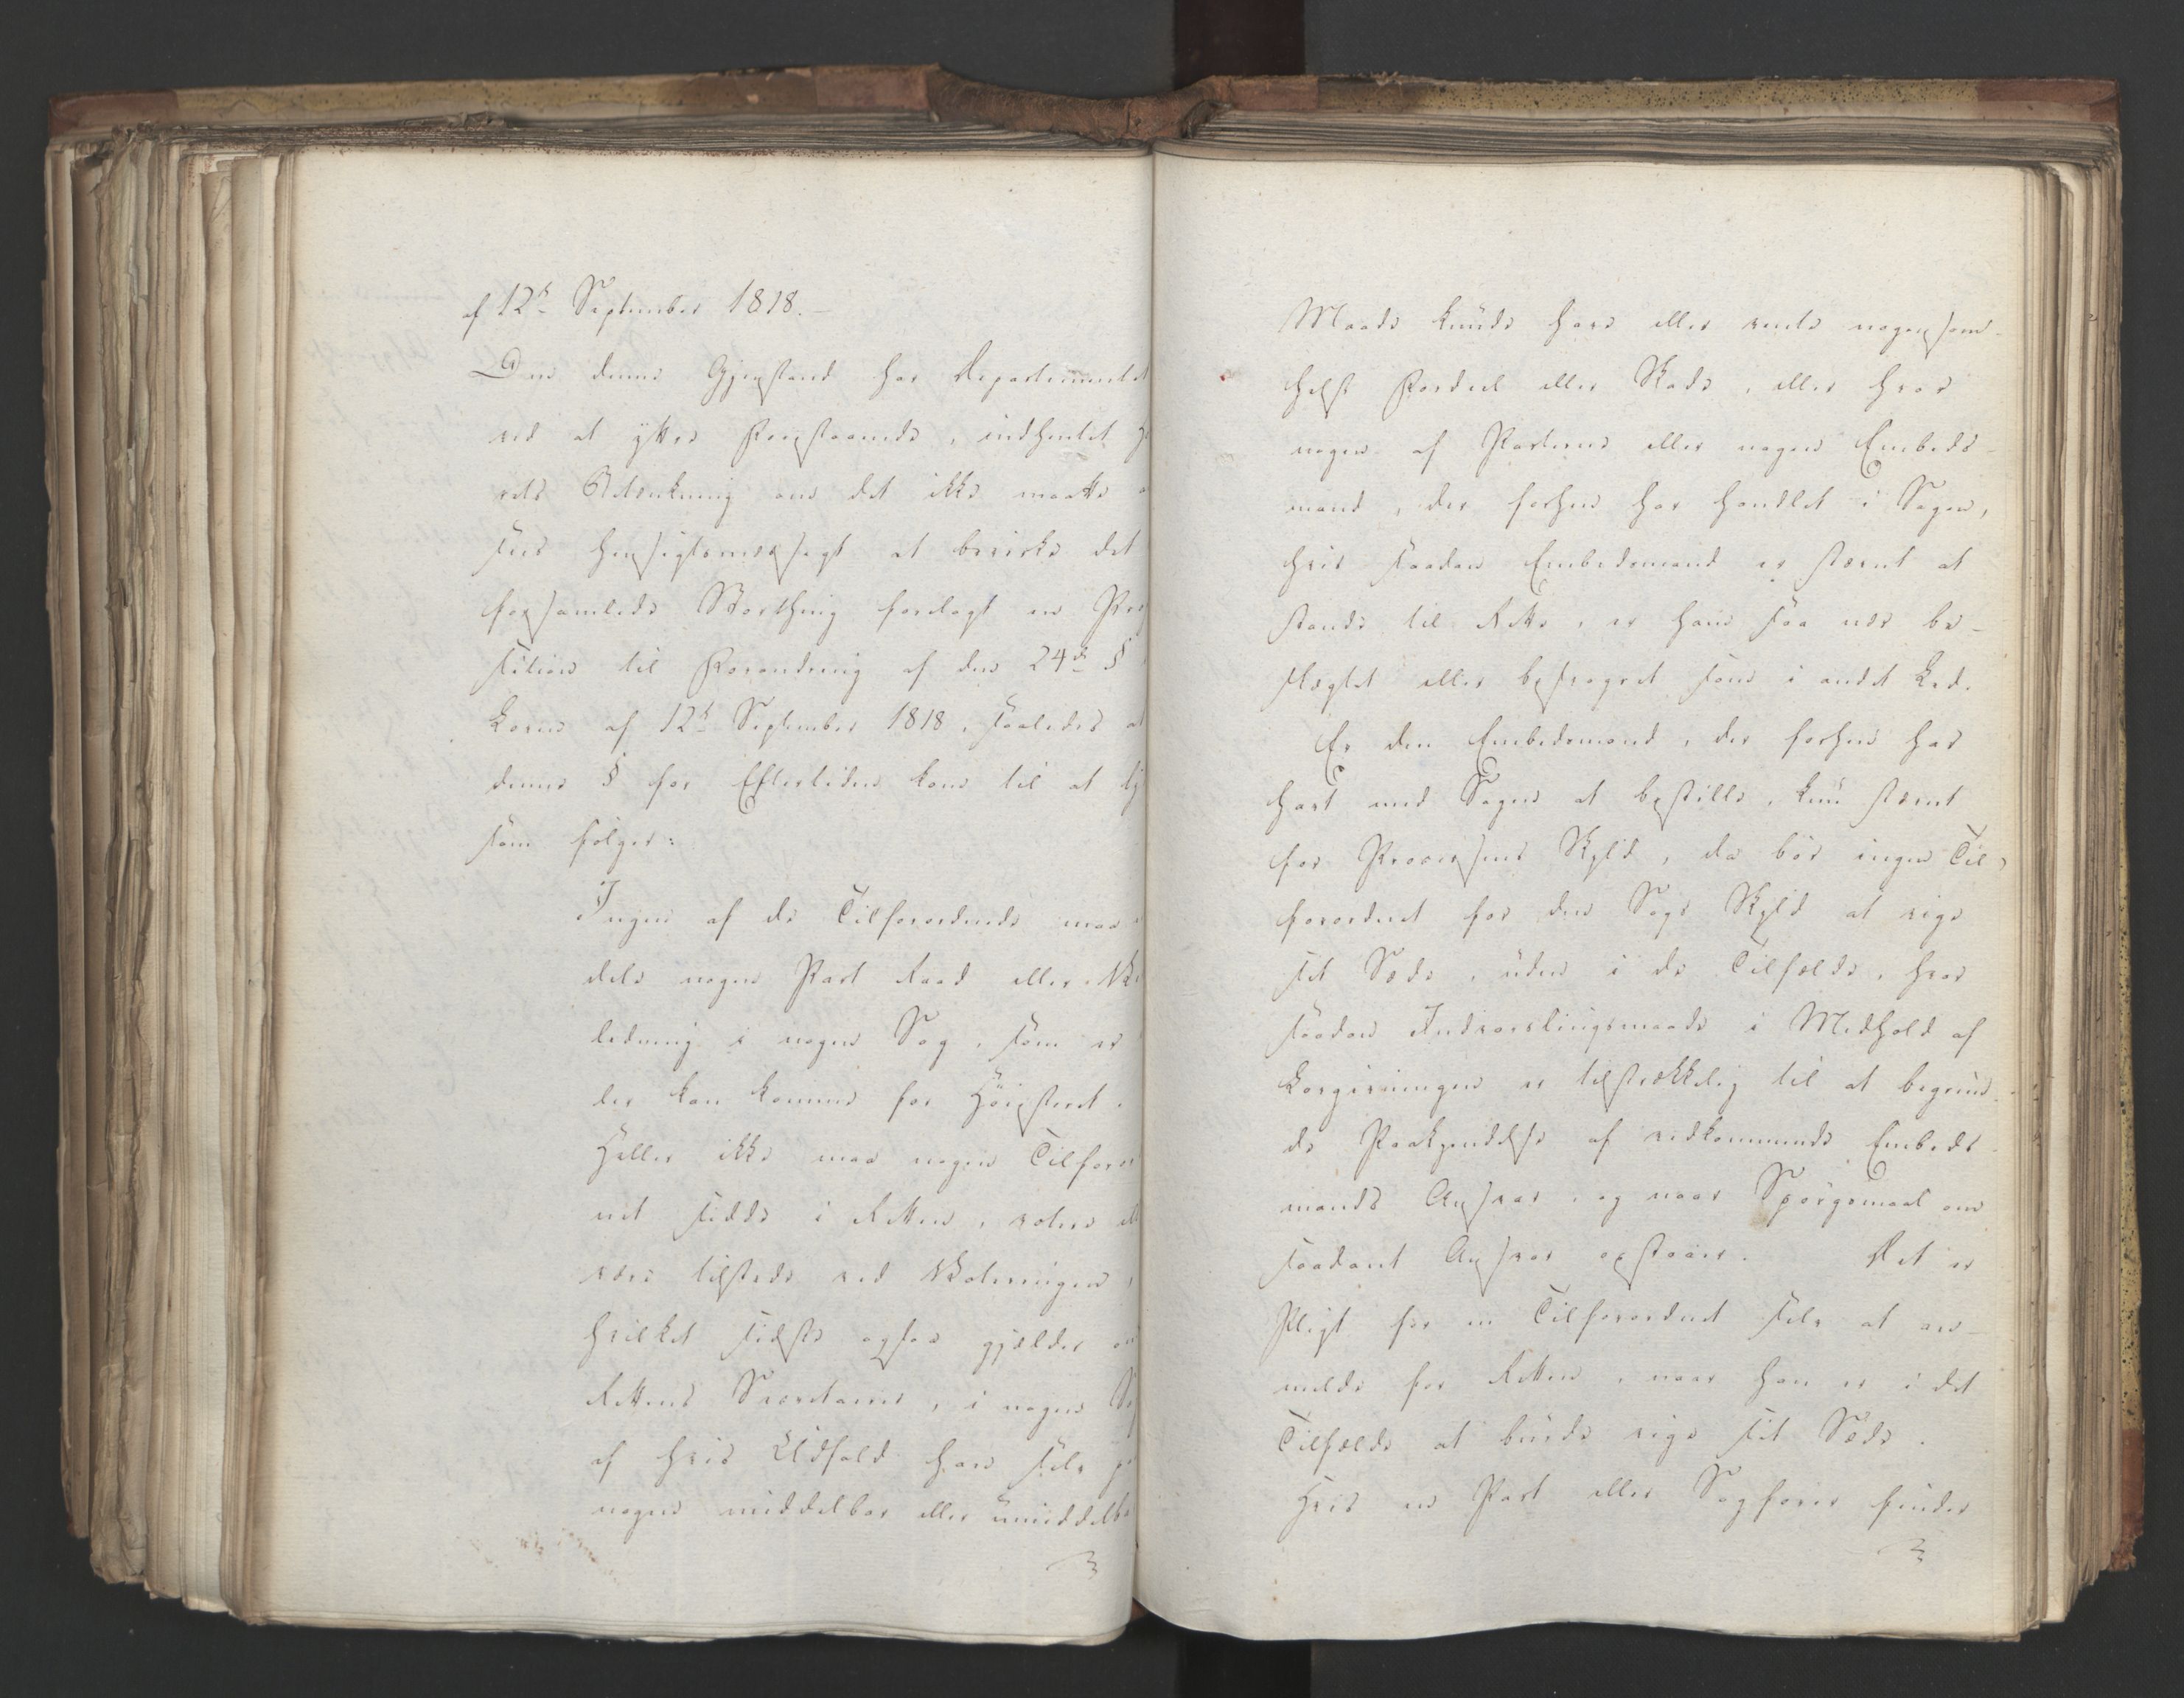 af 12te September 1818.
Om denne Gjenstand har Departementet
ved at yttre Foranstaaende, indhentet
rets Betænkning om det ikke maatte
sees hensigtsmæssigt at bevirke det
forsamlede Storthing forelagt en Pro
sition til Forandring af den 24de §
Loven af 12te September 1818, saaledes at
denne § for Eftertiden kom til at ly
som følger:
Ingen af de Tilforordnede maa
dele nogen Part Raad eller Vei
ledning i nogen Sag, som er
ler kan komme for Høiesteret.
Heller ikke maa nogen Tilforord
net sidde i Retten, votere ell
være tilstede ved Voteringen,
hvilket sidste ogsaa gjælder om
Rettens Secretairer, i nogen Sag
af hvis Udfald han selv paa
nogen middelbar eller umiddelbar
Maade kunde have eller vente nogensom-
helst Fordeel eller Skade, eller hvor
nogen af Parterne eller nogen Embeds-
mand, der forhen har handlet i Sagen,
hvis saadan Embedsmand er stævnt at
stande til Rette, er ham saa nær be-
slægtet eller besvogret som i andet Led.
Er den Embedsmand, der forhen har
havt med Sagen at bestille, kun stævnt
for Processens Skyld, da bør ingen Til-
forordnet for den Sags Skyld at vige
sit Sæde, uden i de Tilfælde, hvor
saadan Indvarslingsmaade i Medhold af
Lovgivningen er tilstrækkelig til at begrun-
de Paakjendelse af vedkommende Embeds-
mands Ansvar, og naar Spørgsmaal om
saadant Ansvar opstaaer. Det er
Pligt for en Tilforordnet selv at an-
melde for Retten, naar han er i det
Tilfælde at burde vige sit Sæde.
Hvis en Part eller Sagfører finder